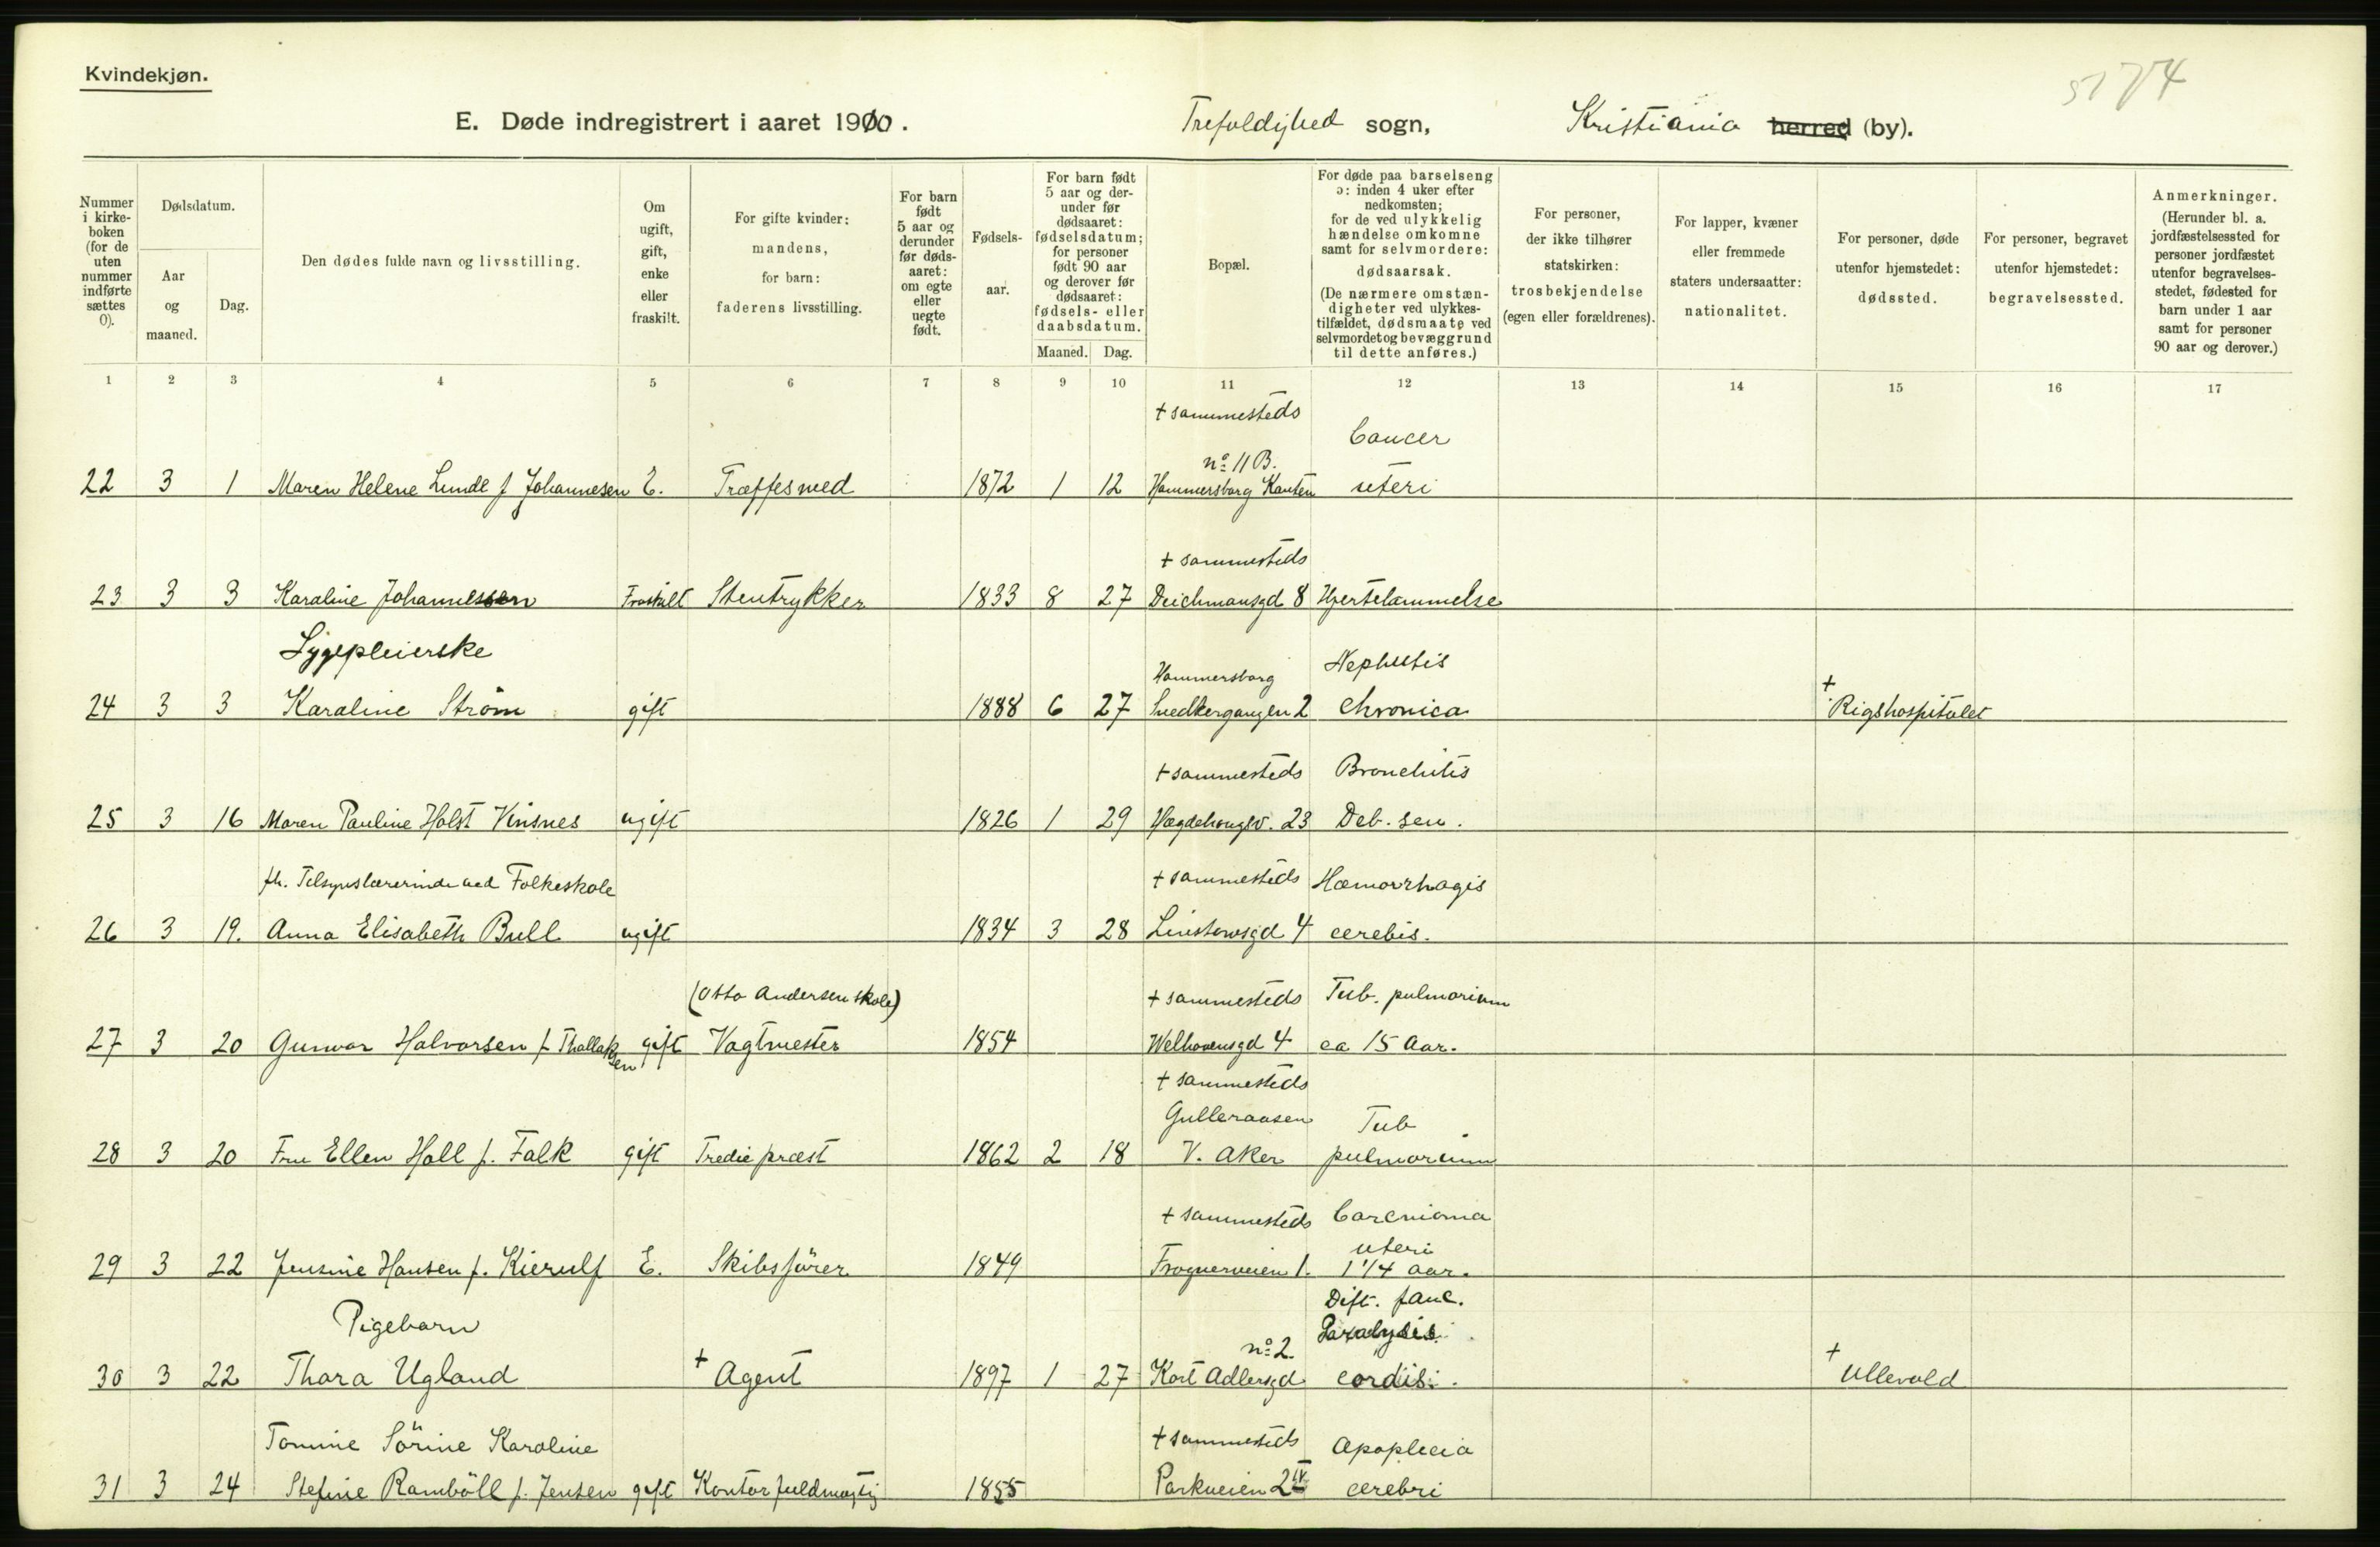 Kvindekjøn.
5174
E. Døde indregistrert i aaret 1900.
Trefoldighed sogn, Kristiania herred (by).
Nummer i kirkeboken (for de uten nummer indførte sættes 0).
Dødsdatum.
Aar og maaned.
Dag.
Den dødes fulde navn og livsstilling.
Om ugift, gift, enke eller fraskilt.
For gifte kvinder: mandens, for barn: faderens livsstilling.
For barn født 5 aar og derunder før dødsaaret: om egte eller uegte født.
Fødsels-aar.
For barn født 5 aar og derunder før dødsaaret: fødselsdatum; for personer født 90 aar og derover før dødsaaret: fødsels- eller daabsdatum.
Maaned. Dag.
Bopæl.
For døde paa barselseng ɔ: inden 4 uker efter nedkomsten; for de ved ulykkelig hændelse omkomne samt for selvmordere: dødsaarsak. (De nærmere omstændigheter ved ulykkestilfældet, dødsmaate ved selvmordet og bevæggrund til dette anføres.)
For personer, der ikke tilhører statskirken: trosbekjendelse (egen eller forældrenes).
For lapper, kvæner eller fremmede staters undersaatter: nationalitet.
For personer, døde utenfor hjemstedet: dødssted.
For personer, begravet utenfor hjemstedet: begravelsessted.
Anmerkninger. (Herunder bl. a. jordfæstelsessted for personer jordfæstet utenfor begravelsesstedet, fødested for barn under 1 aar samt for personer 90 aar og derover.)
1 2 3 4 5 6 7 8 9 10 11 12 13 14 15 16 17
+ sammesteds Cancer
nº 11 B.
22 3 1 Maren Helene Lunde f Johannesen E. Træffesmed 1872 1 12 Hammersborg Kanten uteri
+ sammesteds
23 3 3 Karaline Johannessen Fraskilt Stentrykker 1833 8 27 Deichmansgd 8 Hjertelammelse
Sygepleierske Hammersborg Nephritis +
24 3 3 Karaline Ström gift 1888 6 27 Snedkergangen 2 Chronica Rigshospitalet
+ sammesteds Bronchitis
25 3 16 Maren Pauline Holst Vinsnes ugift 1826 1 29 Hægdehaugsv. 23 Deb. sen.
fh. Tilsynslærerinde ved Folkeskole + sammesteds Hæmorrhagis
26 3 19. Anna Elisabeth Bull ugift 1834 3 28 Linstowsgd 4 cerebis.
(Otto Andersen skole) + sammesteds Tub. pulmorium
27 3 20 Gunvor Halvorsen f Thallaksen gift Vagtmester 1854 Welhavensgd 4 ca 15 Aar.
+ sammesteds
Gulleraasen Tub
28 3 20 Fru Ellen Hall f. Falk gift Tredie præst 1862 2 18 V. Aker pulmorium
+ sammesteds Carcnioma
uteri
29 3 22 Jensine Hansen f. Kierulf E. Skibsförer 1849 Frognerveien 1. 1 1/4 aar.
Pigebarn Dift. fauc.
nº 2 Paralysis
30 3 22 Thora Ugland + Agent 1897 1 27 Kort Adlersgd cordis. + Ullevold
Tomine Sörine Karoline + sammesteds Apoplecia
31 3 24 Stefine Ramböll f. Jensen gift Kontorfuldmægtig 1855 Parkveien 2 IV cerebri